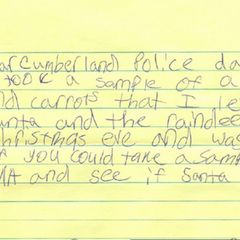 ar Cumberland Police da
took a sample of a
nd carrots that I le
anta and the raindee
christmas eve and was
f you could take a samp
NA and see if Santa